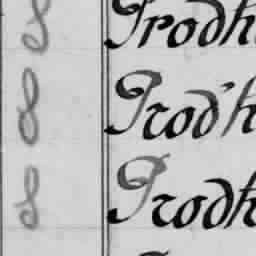 8 Prodh
8 Prod'h
8 Prodh